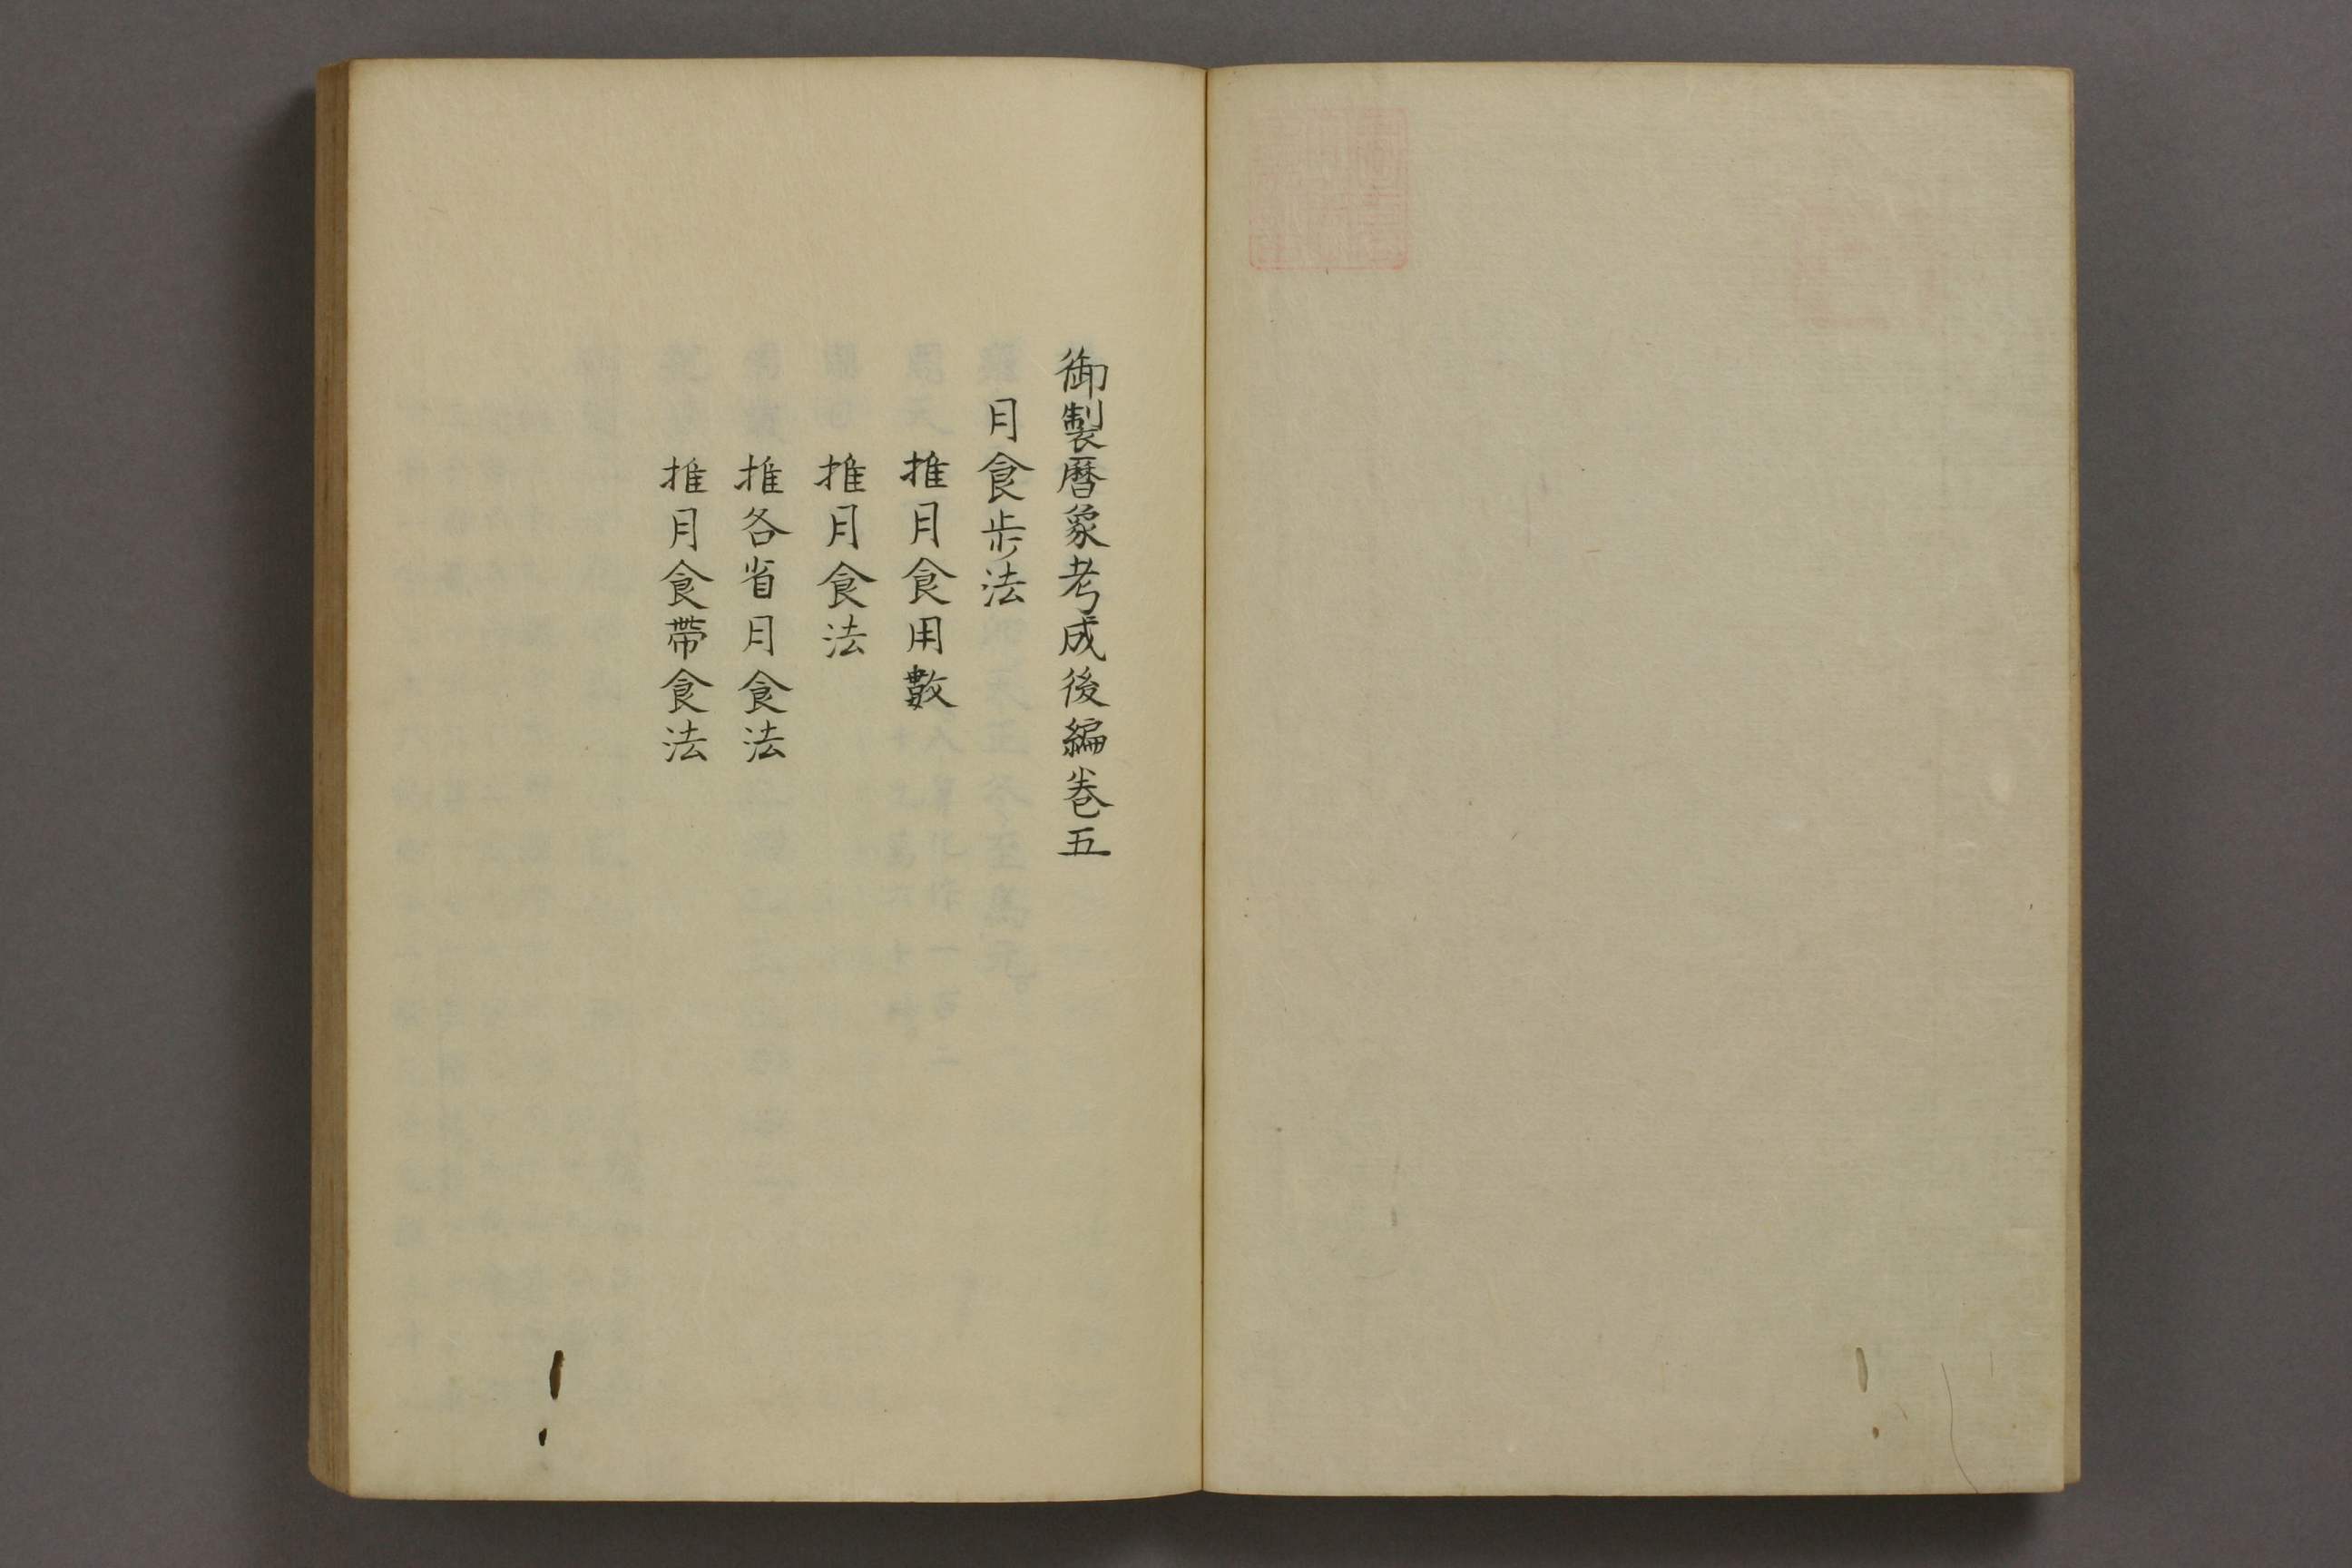 御製暦象考成後編卷五
月食歩法
推月食用數
推月食法
推各省月食法
推月食帶食法